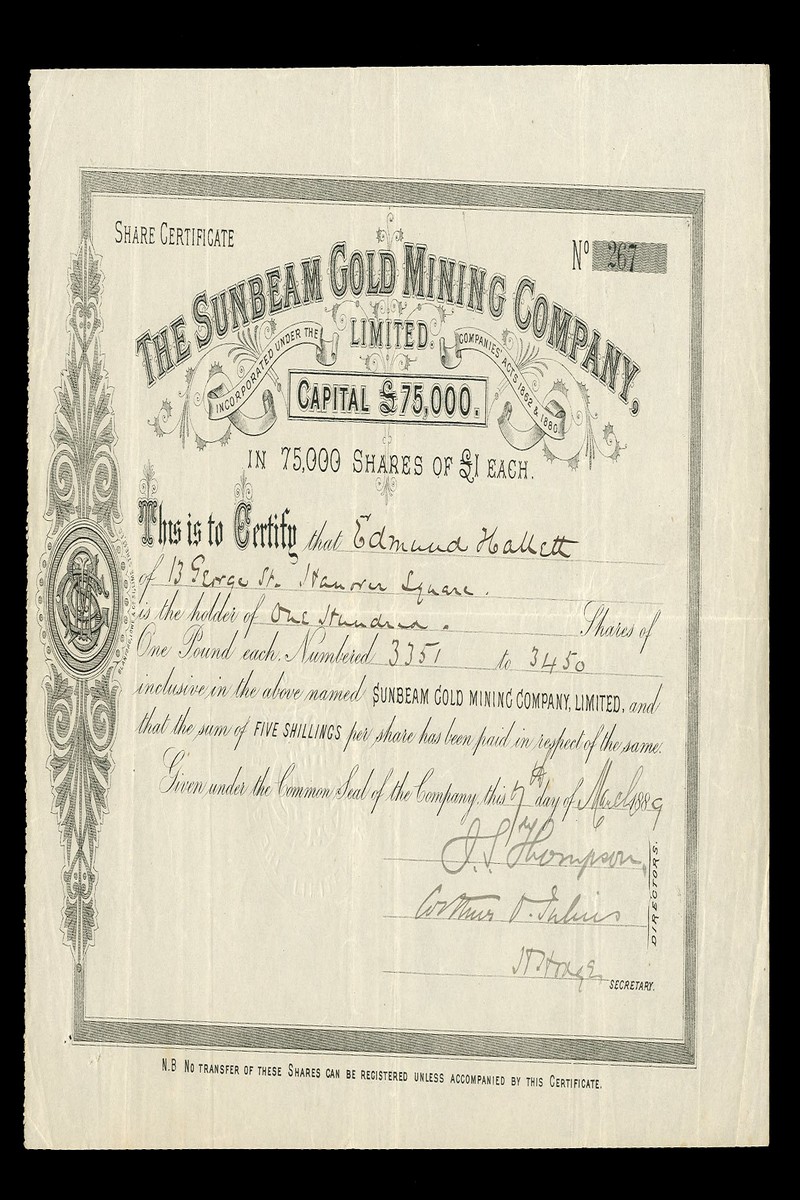 SHARE CERTIFICATE
Nº 267
THE SUNBEAM GOLD MINING COMPANY,
LIMITED.
INCORPORATED UNDER THE COMPANIES' ACTS 1862 & 1880.
CAPITAL £75,000.
IN 75,000 SHARES OF £1 EACH.
This is to Certify that Edmund Hallett
of 13 George St. Hanover Square.
is the holder of One Hundred. Shares of
One Pound each. Numbered 3351 to 3450
inclusive in the above named SUNBEAM GOLD MINING COMPANY, LIMITED, and
that the sum of FIVE SHILLINGS per share has been paid in respect of the same.
Given under the Common Seal of the Company, this 7th day of March 1889
J. S. Thompson
DIRECTORS.
SECRETARY.
N.B NO TRANSFER OF THESE SHARES CAN BE REGISTERED UNLESS ACCOMPANIED BY THIS CERTIFICATE.